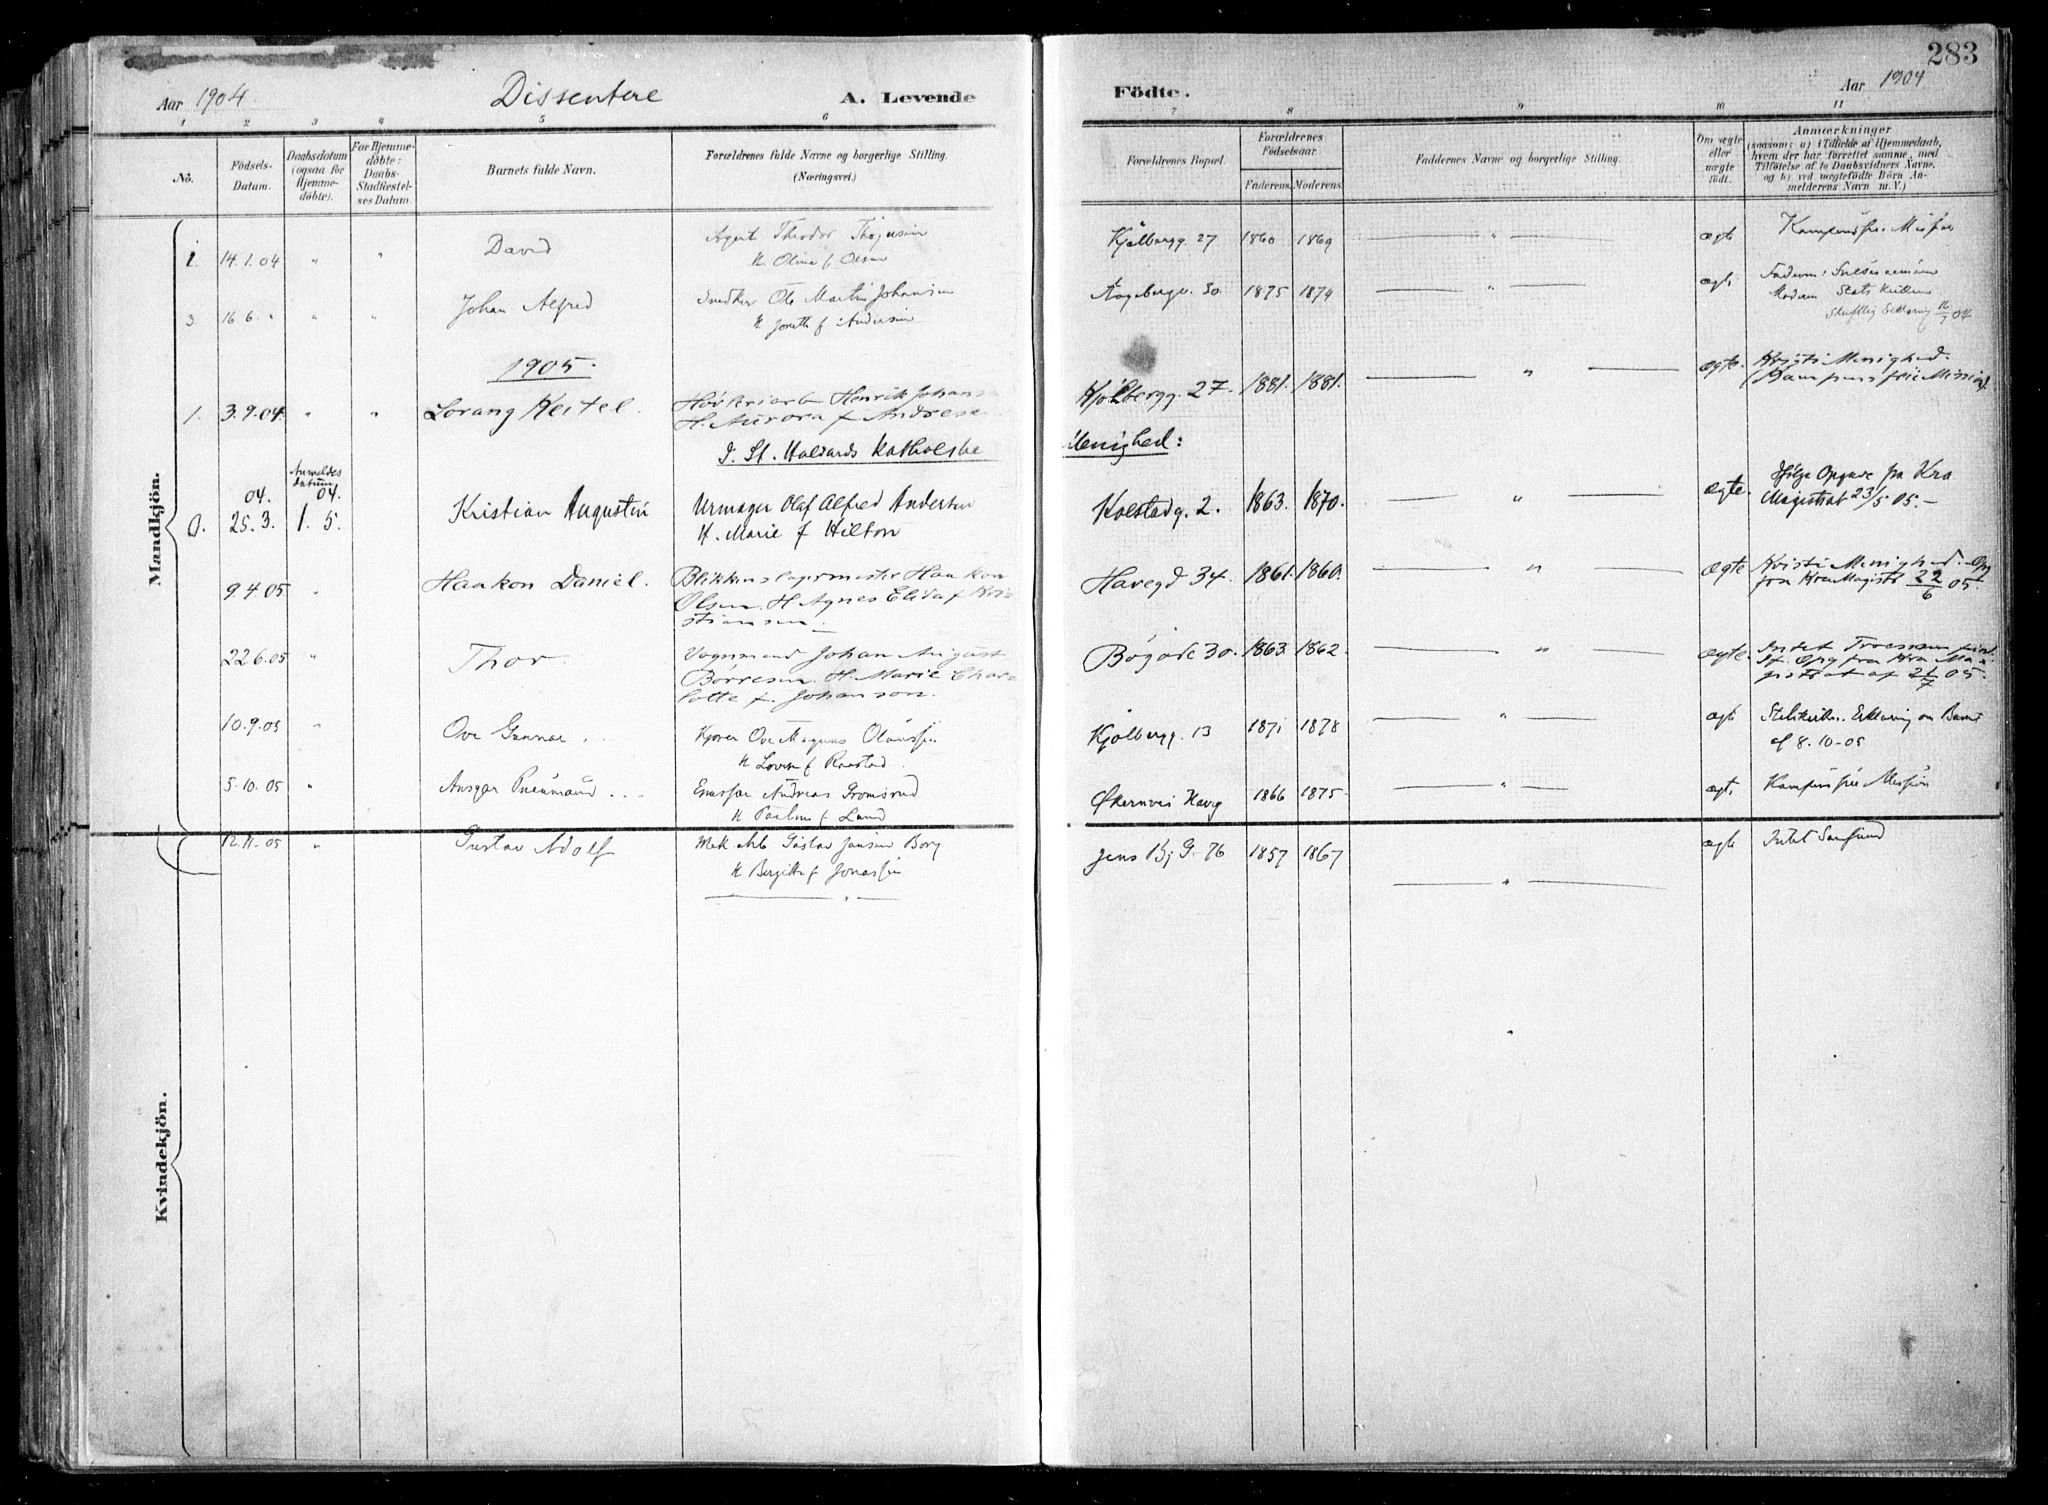 283
Aar 1904
Dissentere
A. Levende
Födte.
Aar 1904
1 2 3 4 5 6 7 8 9 10 11
No.
Födsels-Datum.
Daabsdatum (ogsaa for Hjemmedöbte).
For Hjemmedöbte: Daabs-Stadfæstelses Datum.
Barnets fulde Navn.
Forældrenes fulde Navne og borgerlige Stilling. (Næringsvei.)
Forældrenes Bopæl.
Forældrenes Födselsaar.
Faderens. Moderens.
Faddernes Navne og borgerlige Stilling.
Om ægte eller uægte födt.
Anmærkninger
(saasom: a) i Tilfælde af Hjemmedaab, hvem der har forrettet samme, med Tilföielse af to Daabsvidners Navne, og b) ved uægtefödte Börn Anmelderens Navn m. V.)
Mandkjön.
1. 14.1.04 " " David Agent Theodor
H. Oline f Olsen
Kjølbergg. 27 1860 1869 " ægte
3 16 6. " " " Johan Alfred Snedker Ole Martin Johansen
H f Andersen
30 1875 1874 " ægte
Faderen:
Moderen Statskirken
Skriftlig Erklæring 04
1905.
1. 3.9.04. " " Lorang Keitel. Henrik Johans
H. Aurora f Andresen
Kjølbergg. 27. 1881. 1881. " ægte. Kristi Menighed.
(Kampens frie Mission
I St. Halvards Katholske Menighed:
Anmeldes datum
04. 04.
25.3. 1. 5. Kristian Augustin Urmager Olaf Alfred Andersen
H. Marie f Hilton
Kolstadg. 2. 1863. 1870. " ægte. Ifølge Opgave fra Kra
Magistrat 23/5 05.
9.4.05 " Haakon Daniel. Blikkenslagermester Haakon
Olsen. H Agnes Elida f Kri
stiansen
Havegd 34. 1861. 1860. " ægte Kristi Menighed. Opg
fra Kra Magistr 22/6 05.
22.6.05 " Thor. Vognmand Johan August
Børresen. H. Marie Char
lotte f. Johanson.
Bøgade 30. 1863. 1862. " ægte. Intet Troessamfund
Opg fra Kra Ma-
gistrat af 21/7 05.
10.9.05 " Ove Gunnar Ove Magnus
H f
Kjølbergg. 13 1871 1878 " ægte Erklæring om Barnet
af 8.10-05
5.10.05 " Ansgar Andreas Gromsrud
H Pauline f Lund
Økernvei 1866 1875 " ægte Kampens frie Mission
12.11-05 " Gustav Adolf Mek Arb Gustav Jansen Borg
H Bergitte f
Jens Bj G. 76 1857 1867 " ægte Intet Samfund
Kvindekjön.